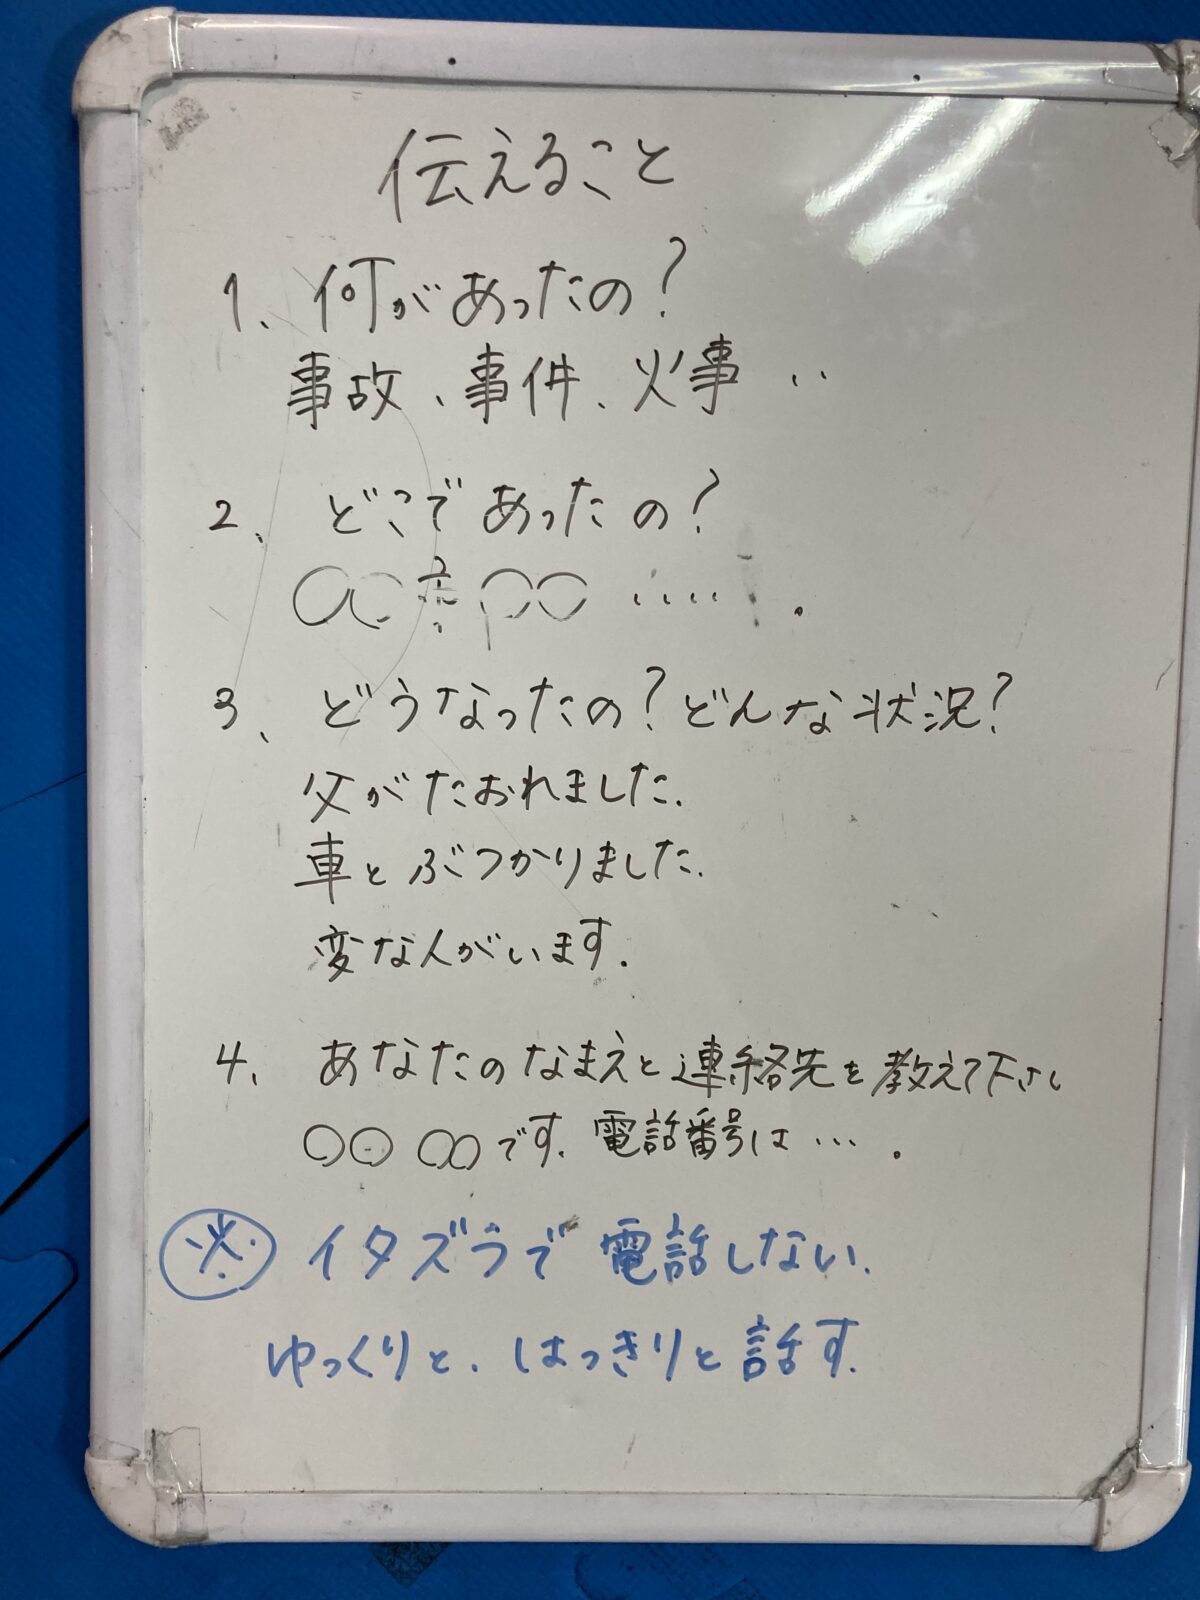 伝えること
1、何があったの?
事故、事件、火事‥
2、どこであったの?
○○市○○‥‥。
3、どうなったの?どんな状況?
父がたおれました.
車とぶつかりました.
変な人がいます.
4、あなたのなまえと連絡先を教えて下さい
○○ ○○です.電話番号は…。
※ イタズラで電話しない.
ゆっくりと、はっきりと話す.